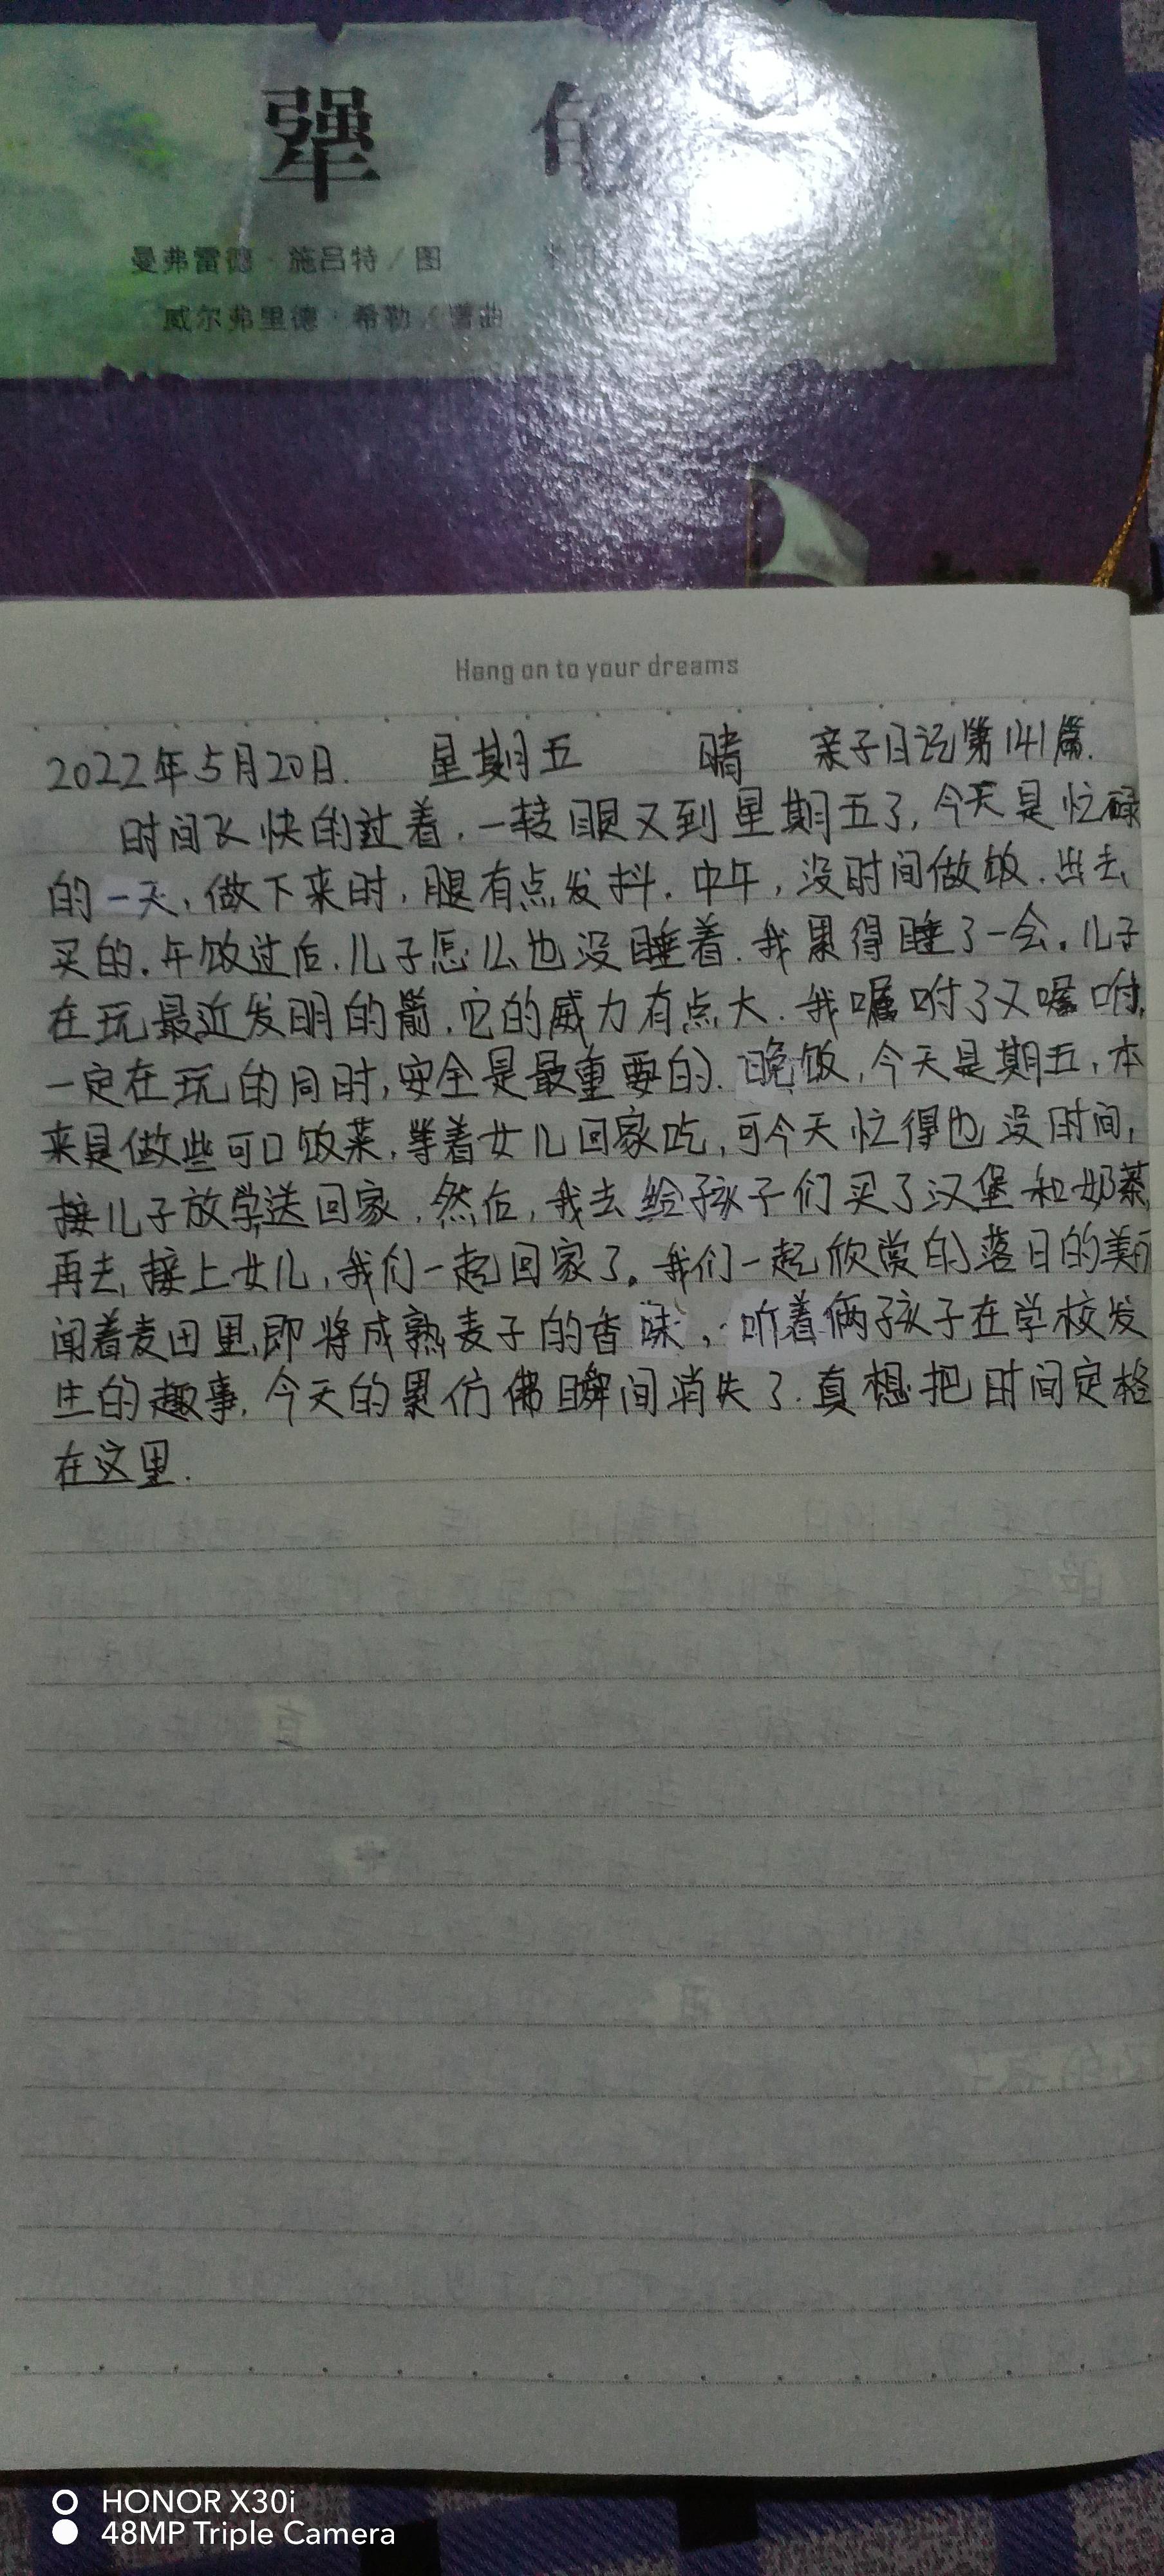 犟
曼弗雷德·施吕特／图
威尔弗里德·希勒／谱曲
Hang on to your dreams
2022年5月20日. 星期五 晴 亲子日记第141篇.
时间飞快的过着,一转眼又到星期五了,今天是忙碌
的一天,做下来时,腿有点发抖.中午,没时间做饭.出去
买的.午饭过后,儿子怎么也没睡着.我累得睡了一会。儿子
在玩最近发明的箭,它的威力有点大.我嘱咐了又嘱咐,
一定在玩的同时,安全是最重要的.晚饭,今天是期五,本
来是做些可口饭菜,等着女儿回家吃,可今天忙得也没时间,
接儿子放学送回家,然后,我去给孩子们买了汉堡和奶茶
再去接上女儿,我们一起回家了。我们一起欣赏的落日的美丽
闻着麦田里即将成熟麦子的香味,听着俩孩子在学校发
生的趣事,今天的累仿佛瞬间消失了.真想把时间定格
在这里.
HONOR X30i
48MP Triple Camera